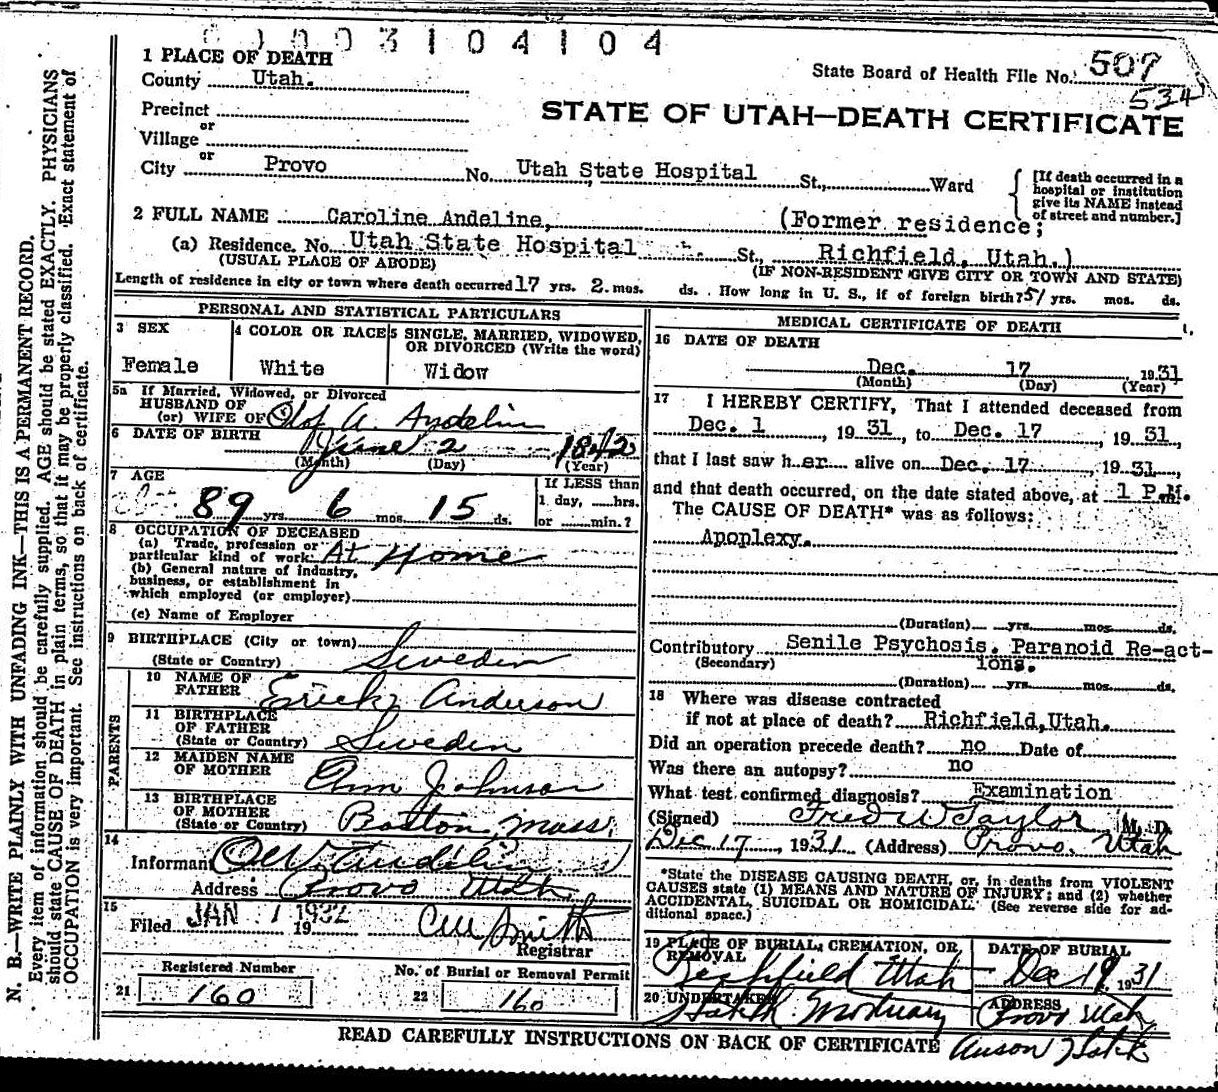 0003104104
1 PLACE OF DEATH
County Utah.
State Board of Health File No. 507
534
Precinct
or
Village
STATE OF UTAH—DEATH CERTIFICATE
or
City Provo No. Utah State Hospital St., Ward
[If death occurred in a
hospital or institution
give its NAME instead
of street and number.]
2 FULL NAME Caroline Andeline, (Former residence;
(a) Residence. No. Utah State Hospital St., Richfield, Utah.)
(USUAL PLACE OF ABODE) (IF NON-RESIDENT GIVE CITY OR TOWN AND STATE)
Length of residence in city or town where death occurred 17 yrs. 2 mos. ds. How long in U. S., if of foreign birth? 51 yrs. mos. ds.
PERSONAL AND STATISTICAL PARTICULARS
3 SEX
Female
4 COLOR OR RACE
White
5 SINGLE, MARRIED, WIDOWED,
OR DIVORCED (Write the word)
Widow
5a If Married, Widowed, or Divorced
HUSBAND OF
(or) WIFE OF A. Andelin
6 DATE OF BIRTH June 2 1842
(Month) (Day) (Year)
7 AGE
89 yrs 6 mos 15 ds.
If LESS than
1 day, hrs.
or min.?
8 OCCUPATION OF DECEASED
(a) Trade, profession or
particular kind of work At Home
(b) General nature of industry,
business, or establishment in
which employed (or employer)
(c) Name of Employer
9 BIRTHPLACE (City or town)
(State or Country) Sweden
PARENTS
10 NAME OF
FATHER Erick Anderson
11 BIRTHPLACE
OF FATHER
(State or Country) Sweden
12 MAIDEN NAME
OF MOTHER Ann Johnson
13 BIRTHPLACE
OF MOTHER
(State or Country) Boston, Mass.
14
Informant O.W. Andelin
Address Provo Utah
15
Filed JAN 1 1932 19
Registrar
Registered Number
21 160
No. of Burial or Removal Permit
22 160
MEDICAL CERTIFICATE OF DEATH
16 DATE OF DEATH
Dec. 17 1931
(Month) (Day) (Year)
17 I HEREBY CERTIFY, That I attended deceased from
Dec. 1, 1931, to Dec. 17, 1931,
that I last saw h er alive on Dec. 17, 1931,
and that death occurred, on the date stated above, at 1 P.M.
The CAUSE OF DEATH* was as follows:
Apoplexy.
(Duration) yrs. mos. ds.
Contributory Senile Psychosis. Paranoid Re-act-
(Secondary) ions.
(Duration) yrs. mos. ds.
18 Where was disease contracted
if not at place of death? Richfield, Utah.
Did an operation precede death? no Date of
Was there an autopsy? no
What test confirmed diagnosis? Examination
(Signed) Fred W Taylor M. D.
Dec 17, 1931 (Address) Provo, Utah
*State the DISEASE CAUSING DEATH, or, in deaths from VIOLENT
CAUSES state (1) MEANS AND NATURE OF INJURY; and (2) whether
ACCIDENTAL, SUICIDAL OR HOMICIDAL. (See reverse side for ad-
ditional space.)
19 PLACE OF BURIAL, CREMATION, OR
REMOVAL
Richfield Utah
DATE OF BURIAL
Dec 19, 1931
20 UNDERTAKER
Hatch Mortuary
ADDRESS
Provo Utah
READ CAREFULLY INSTRUCTIONS ON BACK OF CERTIFICATE Anson Hatch
N. B.—WRITE PLAINLY WITH UNFADING INK—THIS IS A PERMANENT RECORD.
Every item of information should be carefully supplied. AGE should be stated EXACTLY. PHYSICIANS
should state CAUSE OF DEATH in plain terms, so that it may be properly classified. Exact statement of
OCCUPATION is very important. See instructions on back of certificate.